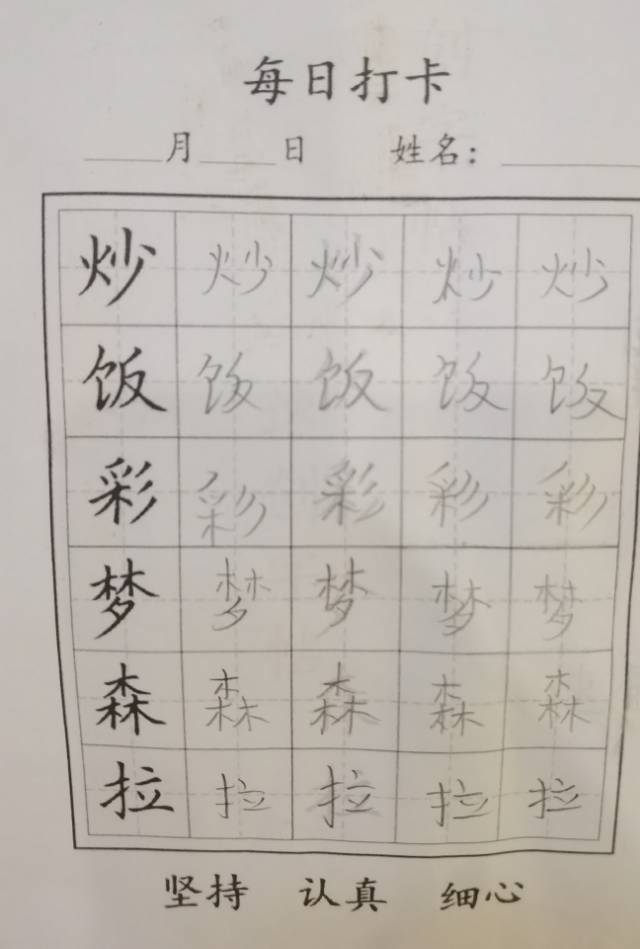 每日打卡
月 日 姓名：
炒 炒 炒 炒 炒
饭 饭 饭 饭 饭
彩 彩 彩 彩 彩
梦 梦 梦 梦 梦
森 森 森 森 森
拉 拉 拉 拉 拉
坚持 认真 细心